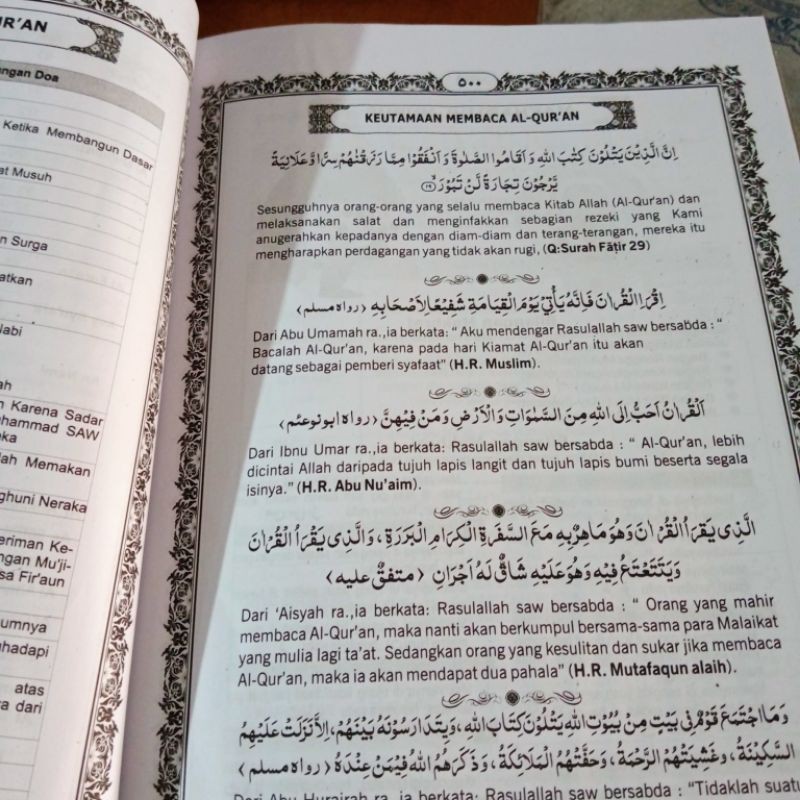 R'AN
ngan Doa
Ketika Membangun Dasar
at Musuh
n Surga
atkan
labi
ah
n Karena Sadar
uhammad SAW
ka
lah Memakan
ghuni Neraka
eriman Ke-
ngan Mu'ji-
sa Fir'aun
umnya
ghadapi
atas
a dari
٥٠٠
KEUTAMAAN MEMBACA AL-QUR'AN
اِنَّ الَّذِيْنَ يَتْلُوْنَ كِتٰبَ اللّٰهِ وَاَقَامُوا الصَّلٰوةَ وَاَنْفَقُوْا مِمَّا رَزَقْنٰهُمْ سِرًّا وَّعَلَانِيَةً
يَّرْجُوْنَ تِجَارَةً لَّنْ تَبُوْرَ ۙ ٢٩
Sesungguhnya orang-orang yang selalu membaca Kitab Allah (Al-Qur'an) dan
melaksanakan salat dan menginfakkan sebagian rezeki yang Kami
anugerahkan kepadanya dengan diam-diam dan terang-terangan, mereka itu
mengharapkan perdagangan yang tidak akan rugi, (Q:Surah Fāṭir 29)
اِقْرَاِ الْقُرْاٰنَ فَاِنَّهُ يَأْتِيْ يَوْمَ الْقِيَامَةِ شَفِيْعًا لِاَصْحَابِهِ ﴿رواه مسلم﴾
Dari Abu Umamah ra.,ia berkata: “ Aku mendengar Rasulallah saw bersabda : “
Bacalah Al-Qur'an, karena pada hari Kiamat Al-Qur'an itu akan
datang sebagai pemberi syafaat” (H.R. Muslim).
اَلْقُرْاٰنُ اَحَبُّ اِلَى اللّٰهِ مِنَ السَّمٰوَاتِ وَالْاَرْضِ وَمَنْ فِيْهِنَّ ﴿رواه ابو نوعثم﴾
Dari Ibnu Umar ra.,ia berkata: Rasulallah saw bersabda : “ Al-Qur'an, lebih
dicintai Allah daripada tujuh lapis langit dan tujuh lapis bumi beserta segala
isinya.” (H.R. Abu Nu'aim).
الَّذِى يَقْرَأُ الْقُرْاٰنَ وَهُوَ مَاهِرٌ بِهِ مَعَ السَّفَرَةِ الْكِرَامِ الْبَرَرَةِ ، وَالَّذِى يَقْرَأُ الْقُرْاٰنَ
وَيَتَتَعْتَعُ فِيْهِ وَهُوَ عَلَيْهِ شَاقٌّ لَهُ اَجْرَانِ ﴿متفق عليه﴾
Dari 'Aisyah ra.,ia berkata: Rasulallah saw bersabda : “ Orang yang mahir
membaca Al-Qur'an, maka nanti akan berkumpul bersama-sama para Malaikat
yang mulia lagi ta'at. Sedangkan orang yang kesulitan dan sukar jika membaca
Al-Qur'an, maka ia akan mendapat dua pahala” (H.R. Mutafaqun alaih).
وَمَا اجْتَمَعَ قَوْمٌ فِى بَيْتٍ مِنْ بُيُوْتِ اللّٰهِ يَتْلُوْنَ كِتَابَ اللّٰهِ، وَيَتَدَارَسُوْنَهُ بَيْنَهُمْ، اِلَّا نَزَلَتْ عَلَيْهِمُ
السَّكِيْنَةُ ، وَغَشِيَتْهُمُ الرَّحْمَةُ ، وَحَفَّتْهُمُ الْمَلَائِكَةُ ، وَذَكَرَهُمُ اللّٰهُ فِيْمَنْ عِنْدَهُ ﴿رواه مسلم﴾
Dari Abu Hurairah ra.,ia berkata: Rasulallah saw bersabda : “Tidaklah suatu